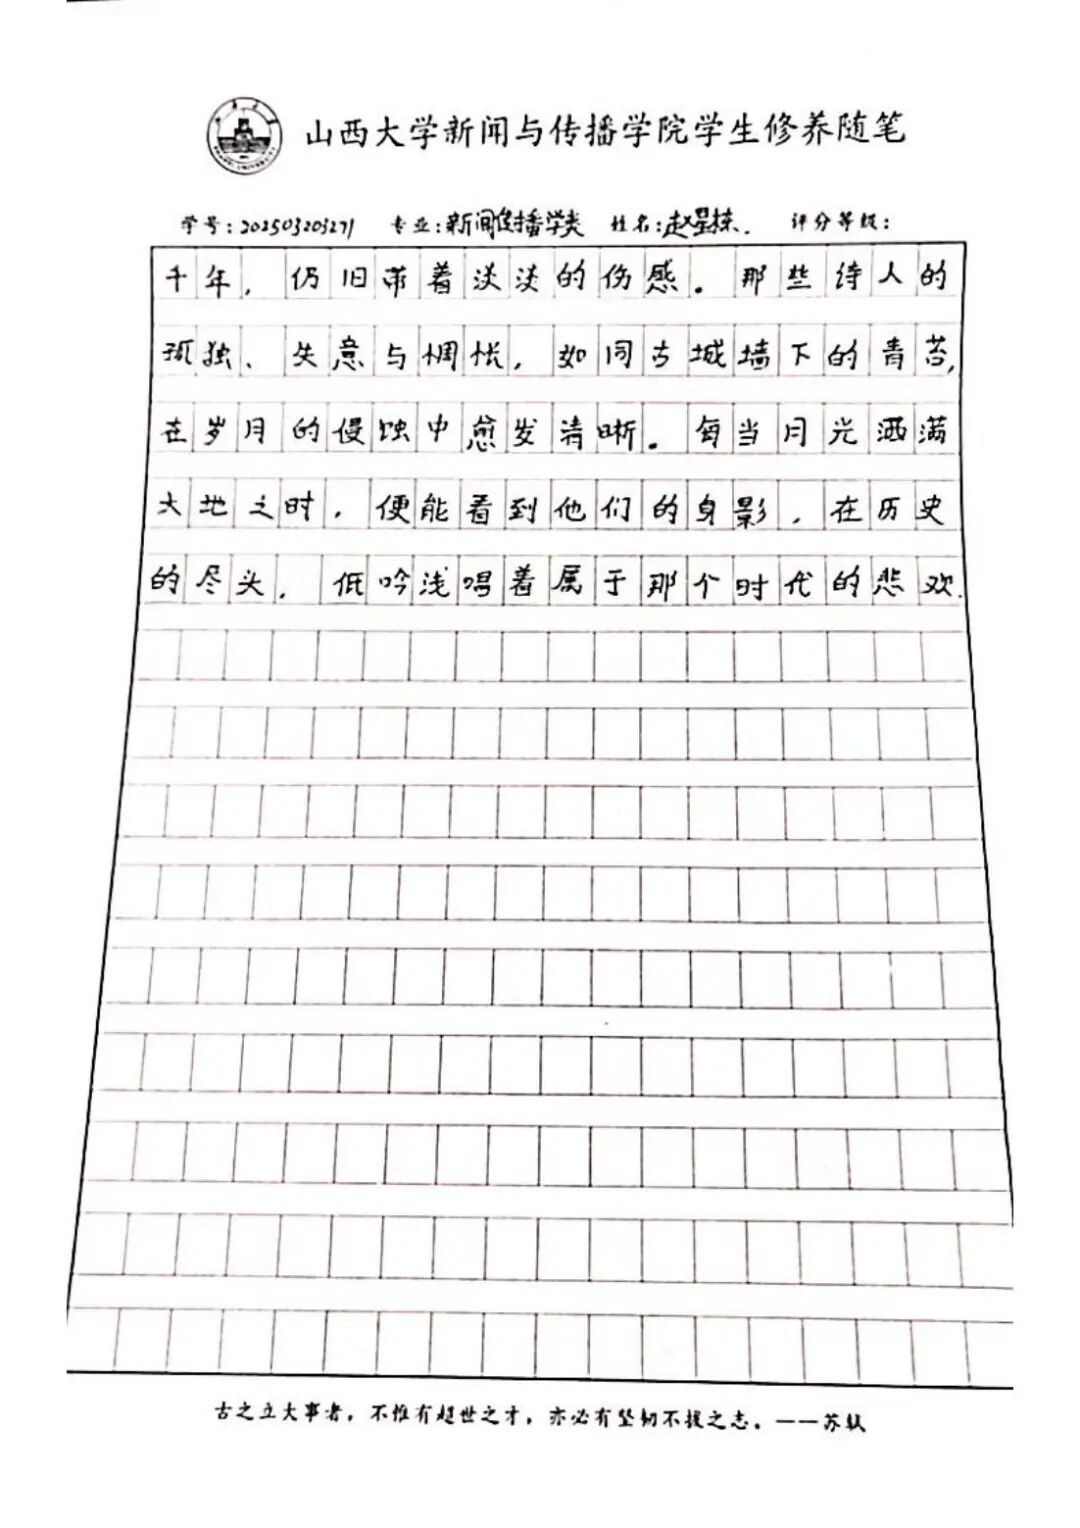 山西大学新闻与传播学院学生修养随笔
学号:202503203271 专业:新闻传播学类 姓名:赵星栋. 评分等级:
千年,仍旧带着淡淡的伤感。那些诗人的
孤独、失意与惆怅,如同古城墙下的青苔,
在岁月的侵蚀中愈发清晰。每当月光洒满
大地之时,便能看到他们的身影,在历史
的尽头,低吟浅唱着属于那个时代的悲欢.
古之立大事者,不惟有超世之才,亦必有坚韧不拔之志。——苏轼